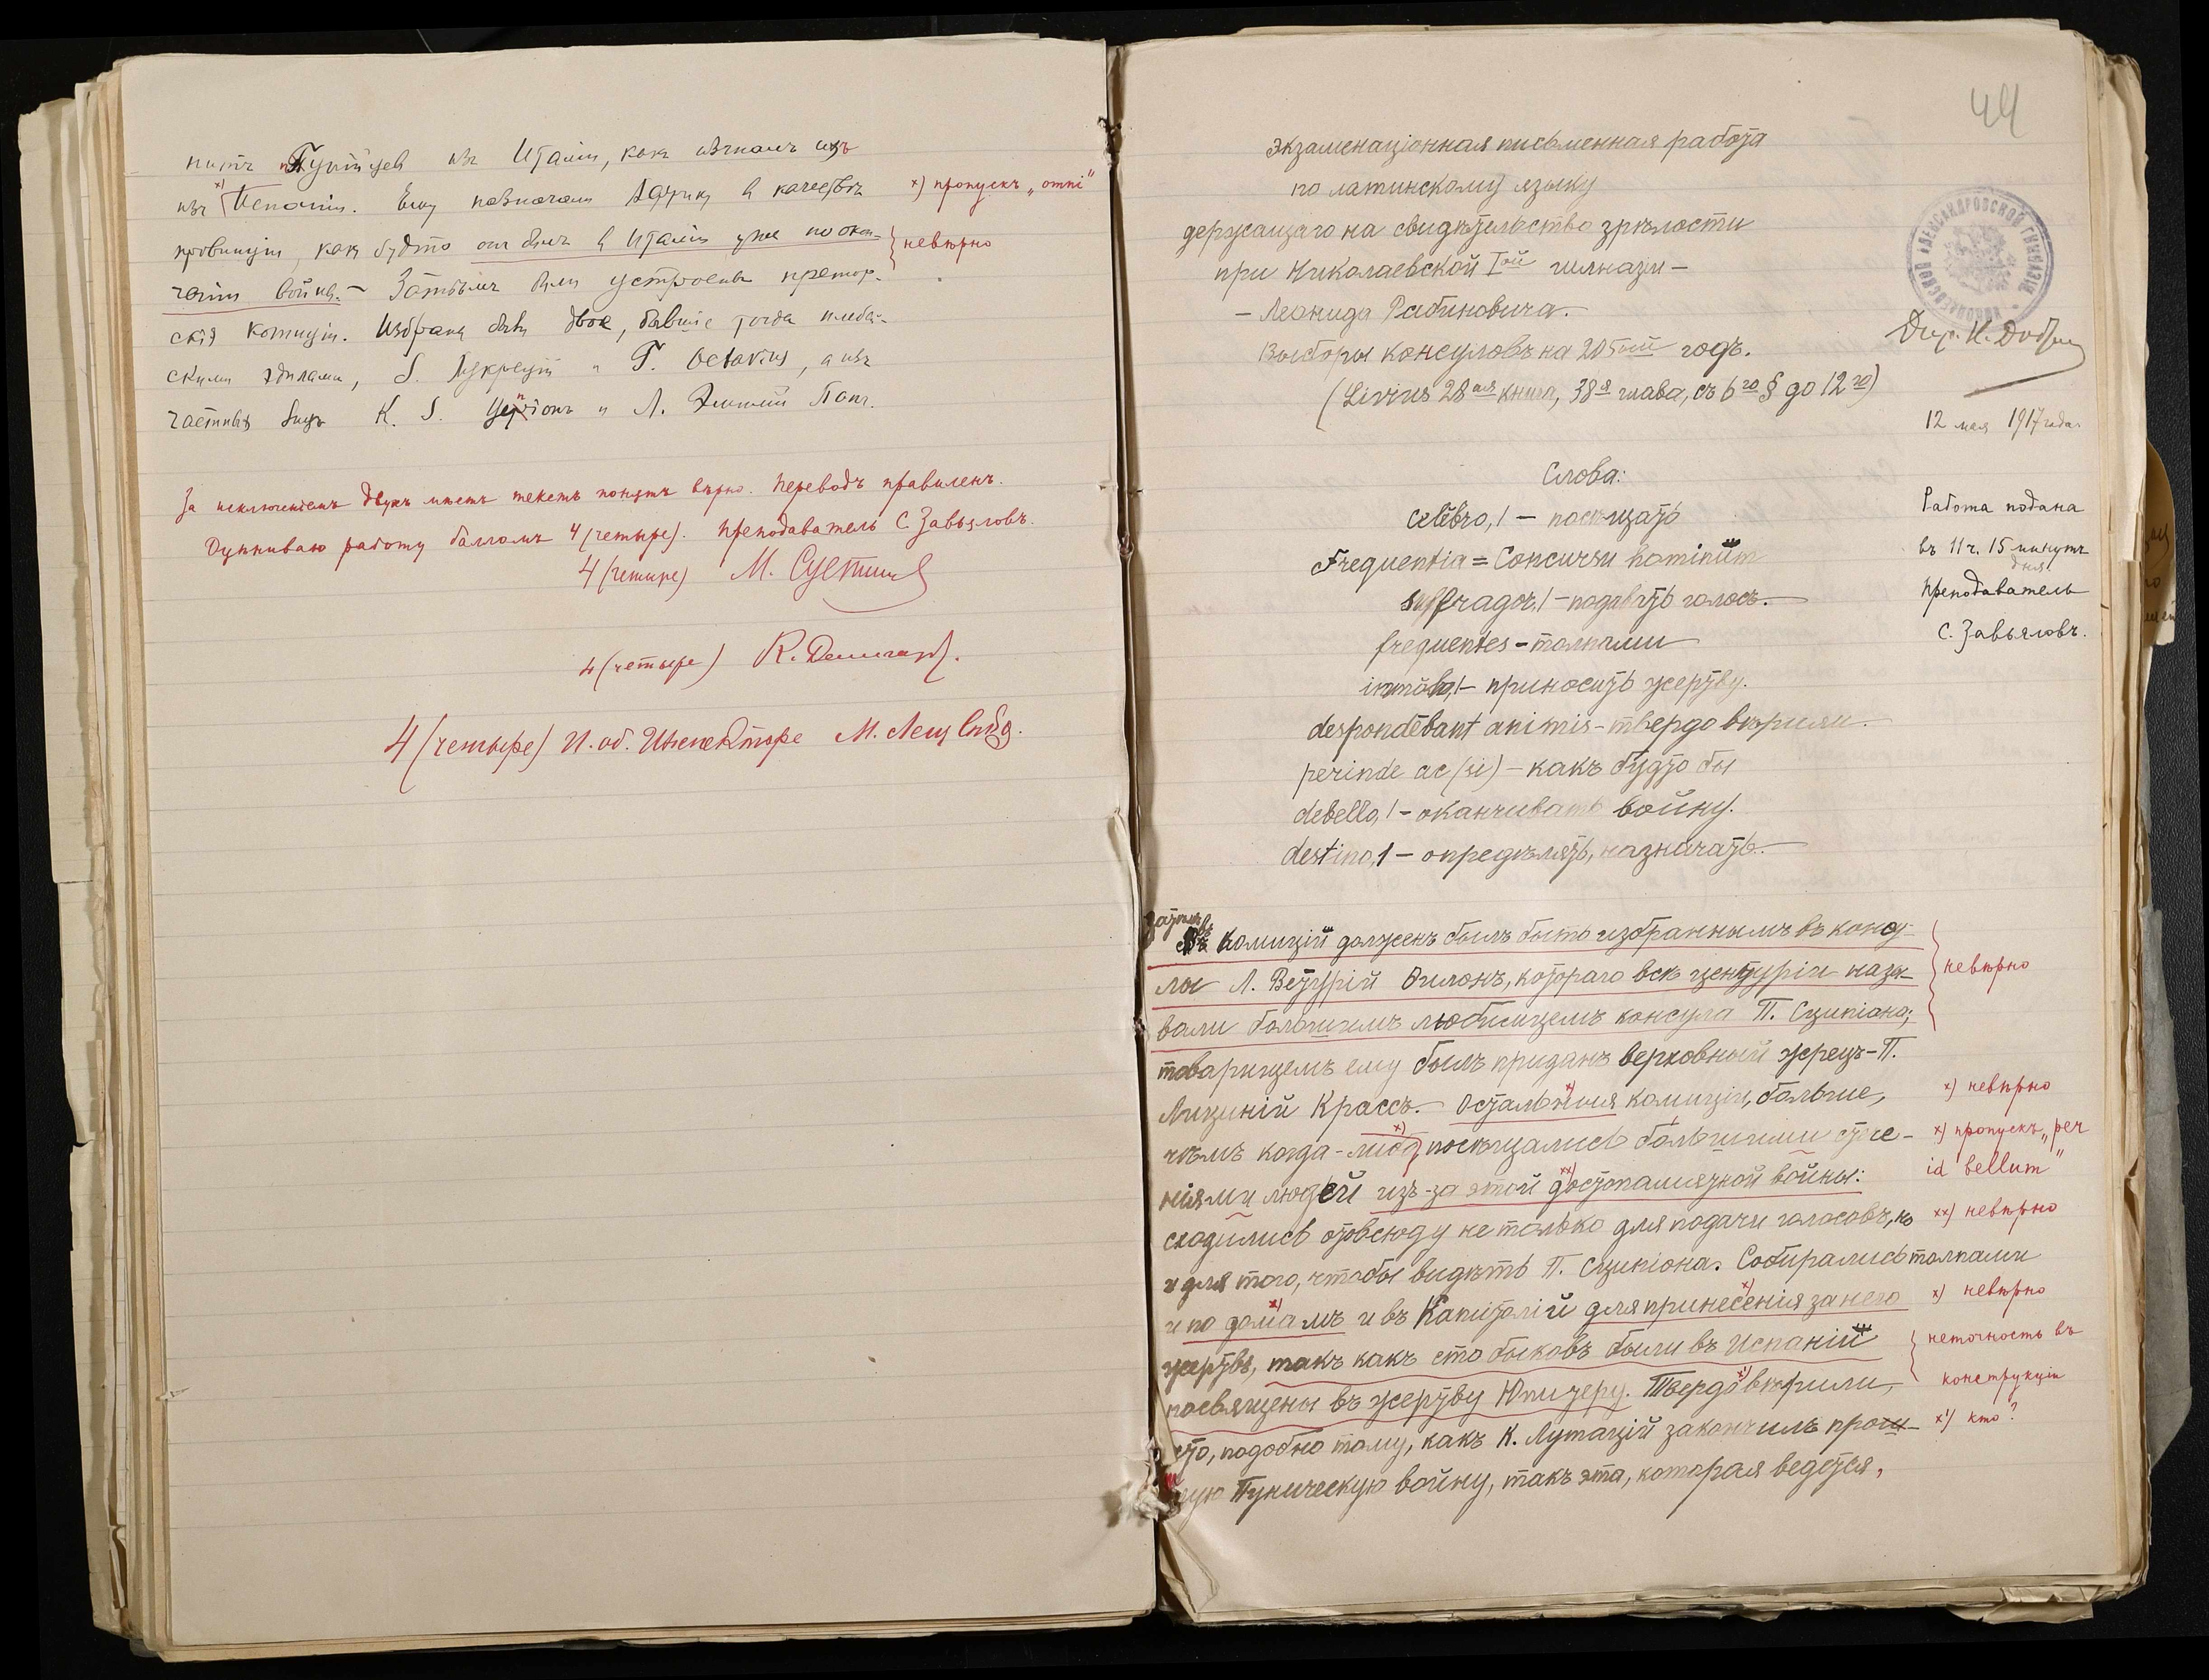 нитъ Пунійцевъ изъ Италіи, какъ изгналъ ихъ
изъ Испаніи. Ему назначали Африку въ качествѣ
x) пропускъ „omni"
провинціи, какъ будто онъ былъ въ Италіи уже по окон-
невѣрно
чаніи войны. – Затѣмъ были устроены претор-
скія комиціи. Избраны были двое, бывшіе тогда плебей-
скими эдилами, S. Лукрецій и Г. Octavius, а изъ
частныхъ лицъ К. S. Цепіонъ и Л. Эмилій Папъ.
За исключеніемъ двухъ мѣстъ текстъ понятъ вѣрно. Переводъ правиленъ.
Оцѣниваю работу балломъ 4 (четыре). Преподаватель С. Завьяловъ.
4 (четыре) М.
4 (четыре) К.
4 (четыре) И. об. Инспектора М.
44
Экзаменаціонная письменная работа
по латинскому языку
держащаго на свидѣтельство зрѣлости
при Николаевской Iой гимназіи –
– Леонида Рабиновича. –
Выборы консуловъ на 205ый годъ.
(Livius 28ая книга, 38я глава, съ 6го § до 12го)
НИКОЛАЕВСКОЙ АЛЕКСАНДРОВСКОЙ ГИМНАЗІИ
Дир. Н.
12 мая 1917 года.
Работа подана
въ 11 ч. 15 минутъ
дня
Преподаватель
С. Завьяловъ.
Слова:
celĕbro, 1 – посѣщать
Frequentia = Concursu hominum
suffragor, 1 – подавать голосъ. –
frequentes – толпами
immŏlo, 1 – приносить жертву.
despondēbant animis – твердо вѣрили. –
perinde ac (si) – какъ будто бы
debello, 1 – оканчивать войну.
destino, 1 – опредѣлять, назначать. –
Затѣмъ
въ комицій долженъ былъ быть избраннымъ въ консу-
лы Л. Ветурій Филонъ, котораго всѣ центуріи назы-
невѣрно
вали большимъ любимцемъ консула П. Сципіона;
товарищемъ ему былъ приданъ верховный жрецъ – П.
Лициній Крассъ. – Остальныя комиціи, больше,
x) невѣрно
чѣмъ когда-либо, посѣщались большими стече-
x) пропускъ „per
id bellum"
ніями людей изъ-за этой достопамятной войны:
xx) невѣрно
сходились отовсюду не только для подачи голосовъ, но
и для того, чтобы видѣть П. Сципіона. Собирались толпами
и по домамъ и въ Капитолій для принесенія за него
x) невѣрно
жертвъ, такъ какъ сто быковъ были въ Испаніи
неточность въ
конструкціи
посвящены въ жертву Юпитеру. Твердо вѣрили,
x') кто?
что, подобно тому, какъ К. Лутацій закончилъ прош-
лую Пуническую войну, такъ эта, которая ведется,